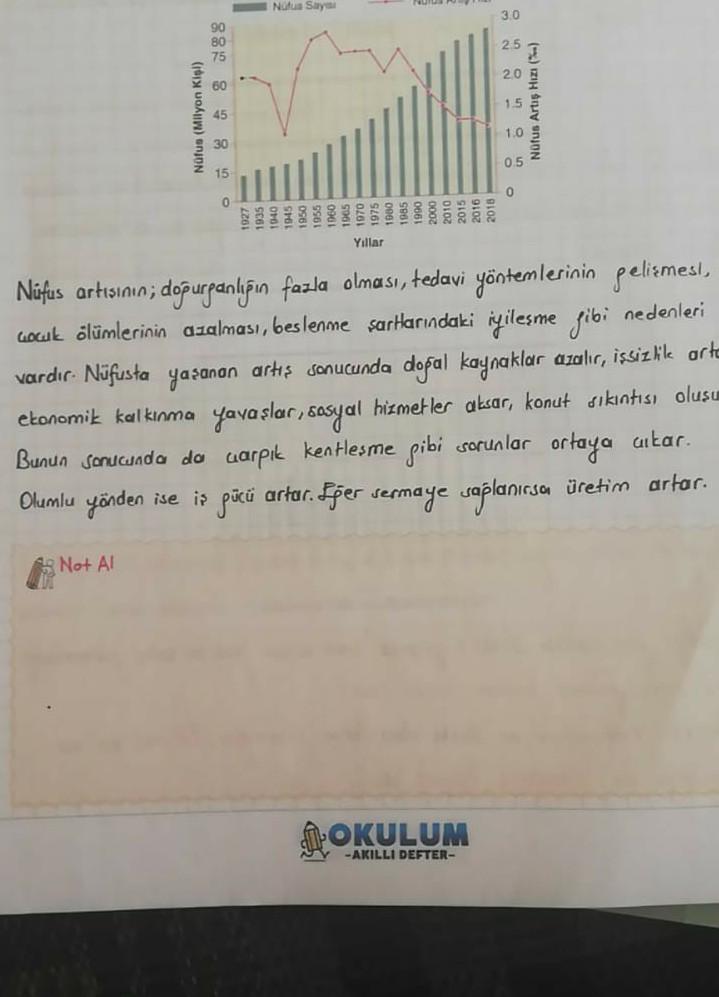 Nüfus Sayısı
Nüfus Artış Hızı
90
80
75
60
45
30
15
0
Nüfus (Milyon Kişi)
3.0
2.5
2.0
1.5
1.0
0.5
0
Nüfus Artış Hızı (‰)
1927 1935 1940 1945 1950 1955 1960 1965 1970 1975 1980 1985 1990 2000 2010 2015 2016 2018
Yıllar
Nüfus artışının; doğurganlığın fazla olması, tedavi yöntemlerinin gelişmesi,
çocuk ölümlerinin azalması, beslenme şartlarındaki iyileşme gibi nedenleri
vardır. Nüfusta yaşanan artış sonucunda doğal kaynaklar azalır, işsizlik arta
ekonomik kalkınma yavaşlar, sosyal hizmetler aksar, konut sıkıntısı oluşu
Bunun sonucunda da çarpık kentleşme gibi sorunlar ortaya çıkar.
Olumlu yönden ise iş gücü artar. Eğer sermaye sağlanırsa üretim artar.
Not Al
OKULUM
-AKILLI DEFTER-